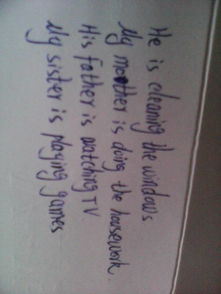 He is cleaning the windows
My mother is doing the housework.
His father is watching TV
My sister is playing games